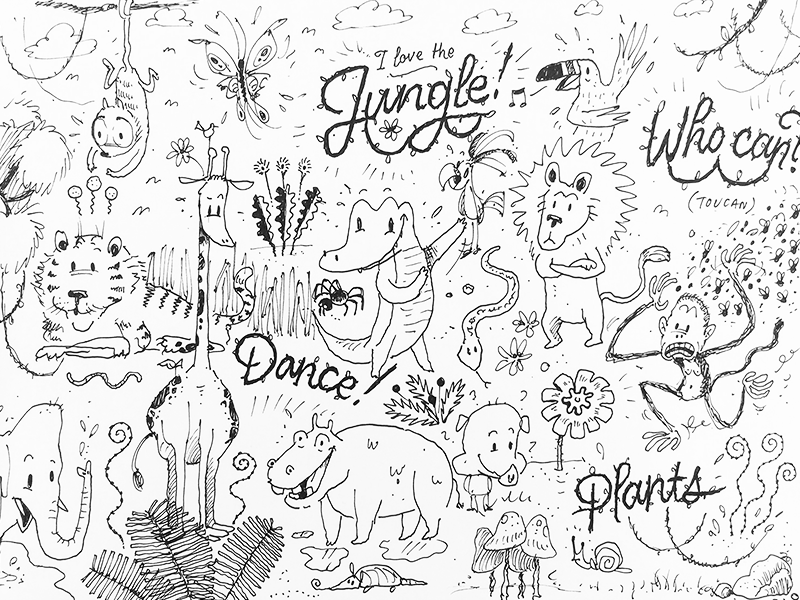 I love the
Jungle!
Who can?
(TOUCAN)
Dance!
Plants